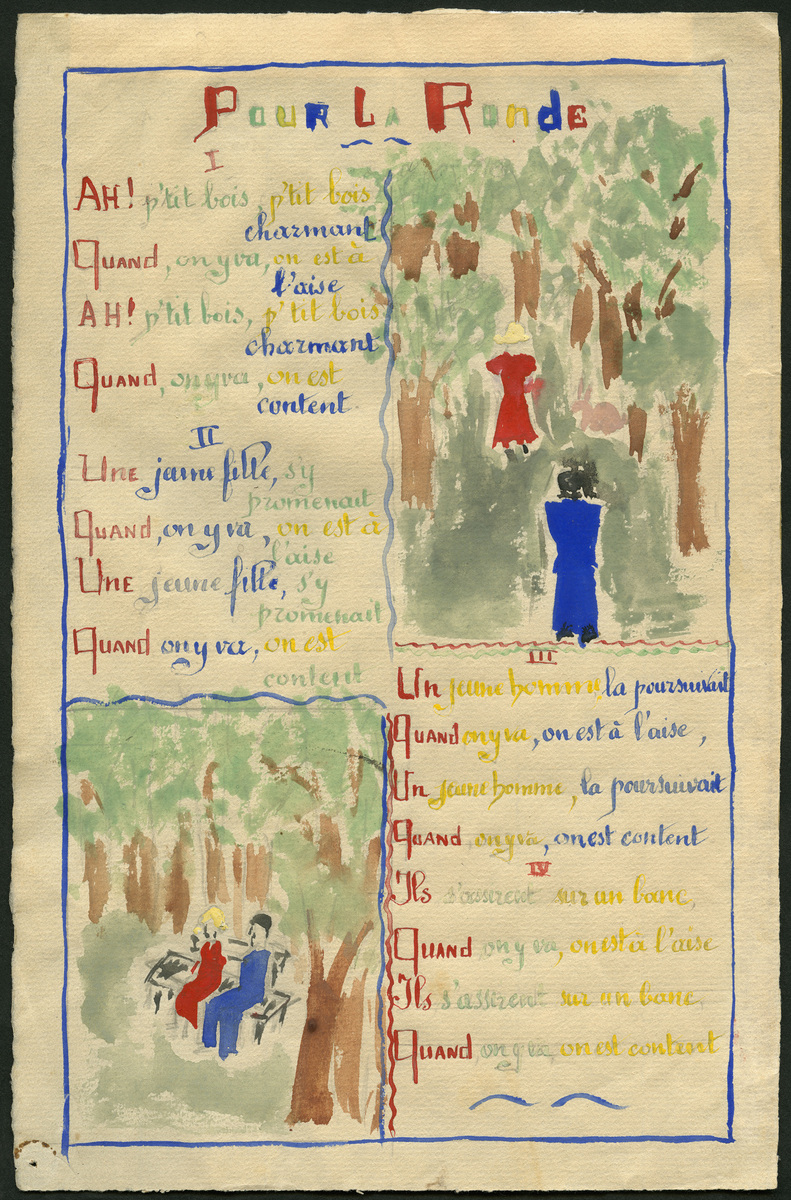 POUR LA RONDE
I
AH! p'tit bois, p'tit bois
charmant
QUAND, on y va, on est à
l'aise
AH! p'tit bois, p'tit bois
charmant
QUAND, on y va, on est
content
II
UNE jeune fille, s'y
promenait
QUAND, on y va, on est à
l'aise
UNE jeune fille, s'y
promenait
QUAND on y va, on est
content
III
Un jeune homme, la poursuivait
QUAND on y va, on est à l'aise,
Un jeune homme, la poursuivait
QUAND on y va, on est content
IV
Ils s'assirent sur un banc,
QUAND on y va, on est à l'aise
Ils s'assirent sur un banc,
QUAND on y va, on est content